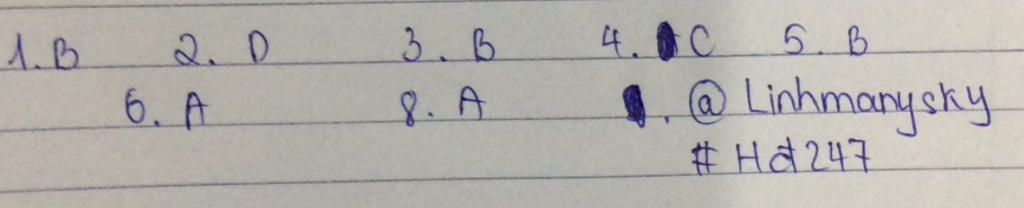 1. B 2. D 3. B 4. C 5. B
6. A 8. A . @ Linhmanysky
# Hd247